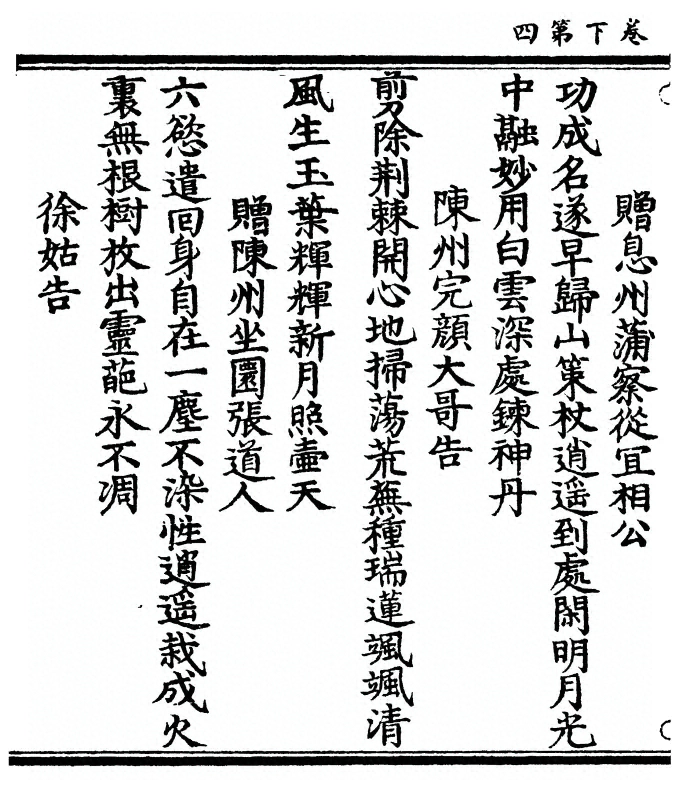 卷下第四
贈息州蒲察從宜相公
功成名遂早歸山策杖逍遥到處閑明月光
中融妙用白雲深處鍊神丹
陳州完顔大哥告
剪除荆棘開心地掃蕩荒蕪種瑞蓮颯颯清
風生玉葉輝輝新月照壷天
贈陳州坐圜張道人
六慾遣回身自在一塵不染性逍遥栽成火
裏無根樹放出靈葩永不凋
徐姑告